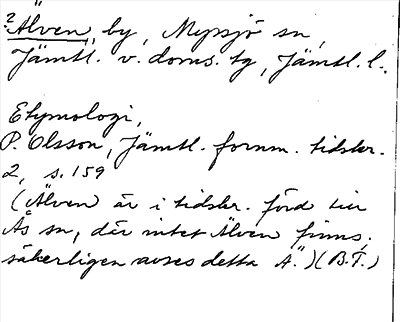 ? Älven, by, Mysjö sn,
Jämtl. v. doms. tg, Jämtl. l.
Etymologi,
P. Olsson, Jämtl. fornm. tidskr.
2, s. 159
(Älven är i tidskr. förd till
Ås sn, där intet Älven finns,
säkerligen avses detta Ä.) (B.F.)